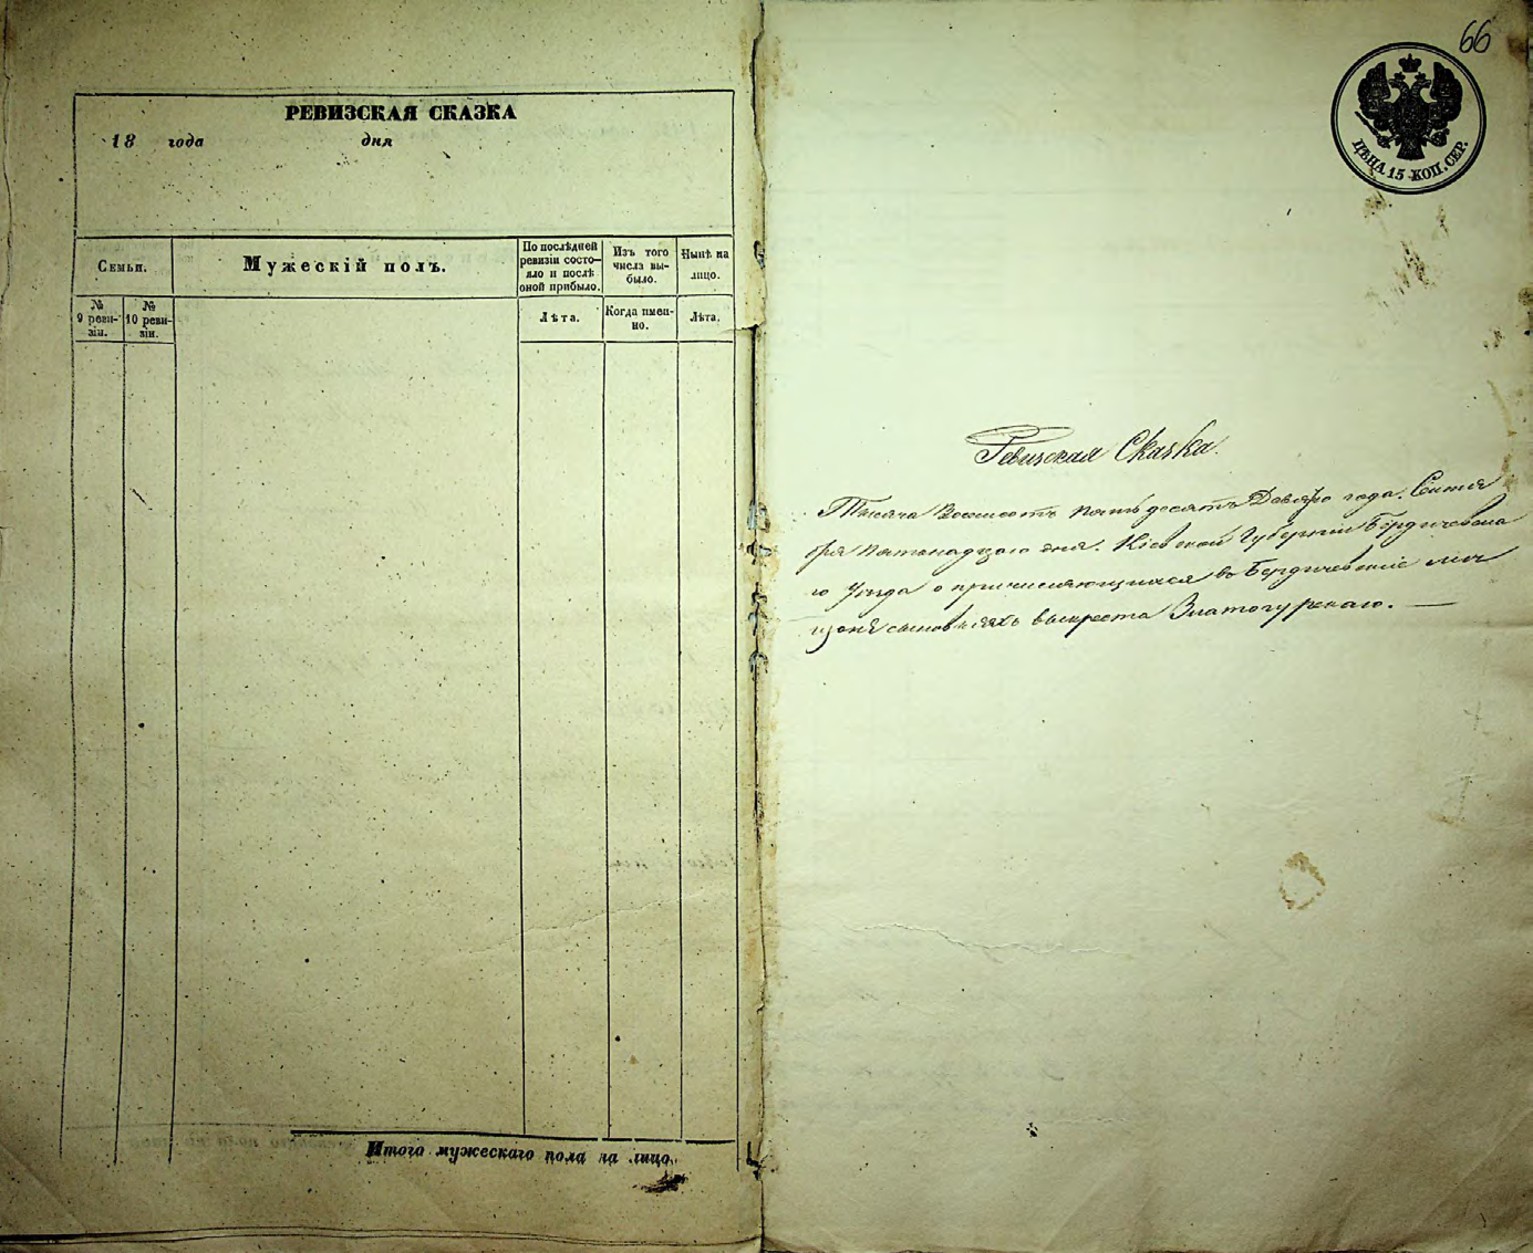 РЕВИЗСКАЯ СКАЗКА
18 года дня
Семьи.
Мужескій полъ.
По послѣдней
ревизіи состо-
яло и послѣ
оной прибыло.
Изъ того
числа вы-
было.
Нынѣ на
лицо.
№
9 реви-
зіи.
№
10 реви-
зіи.
Лѣта.
Когда имен-
но.
Лѣта.
Итого мужескаго пола на лицо.
66
ЦѢНА 15 КОП. СЕР.
Ревизская Сказка.
Тысяча Восемсотъ пятьдесятъ Девято года. Сентя
бря пятнадцаго дня. Кіевской Губерніи Бердичевска
го Уѣзда о причисляющихся въ Бердичевскіе мѣщ
сыновьяхъ выкреста Златогурскаго. —